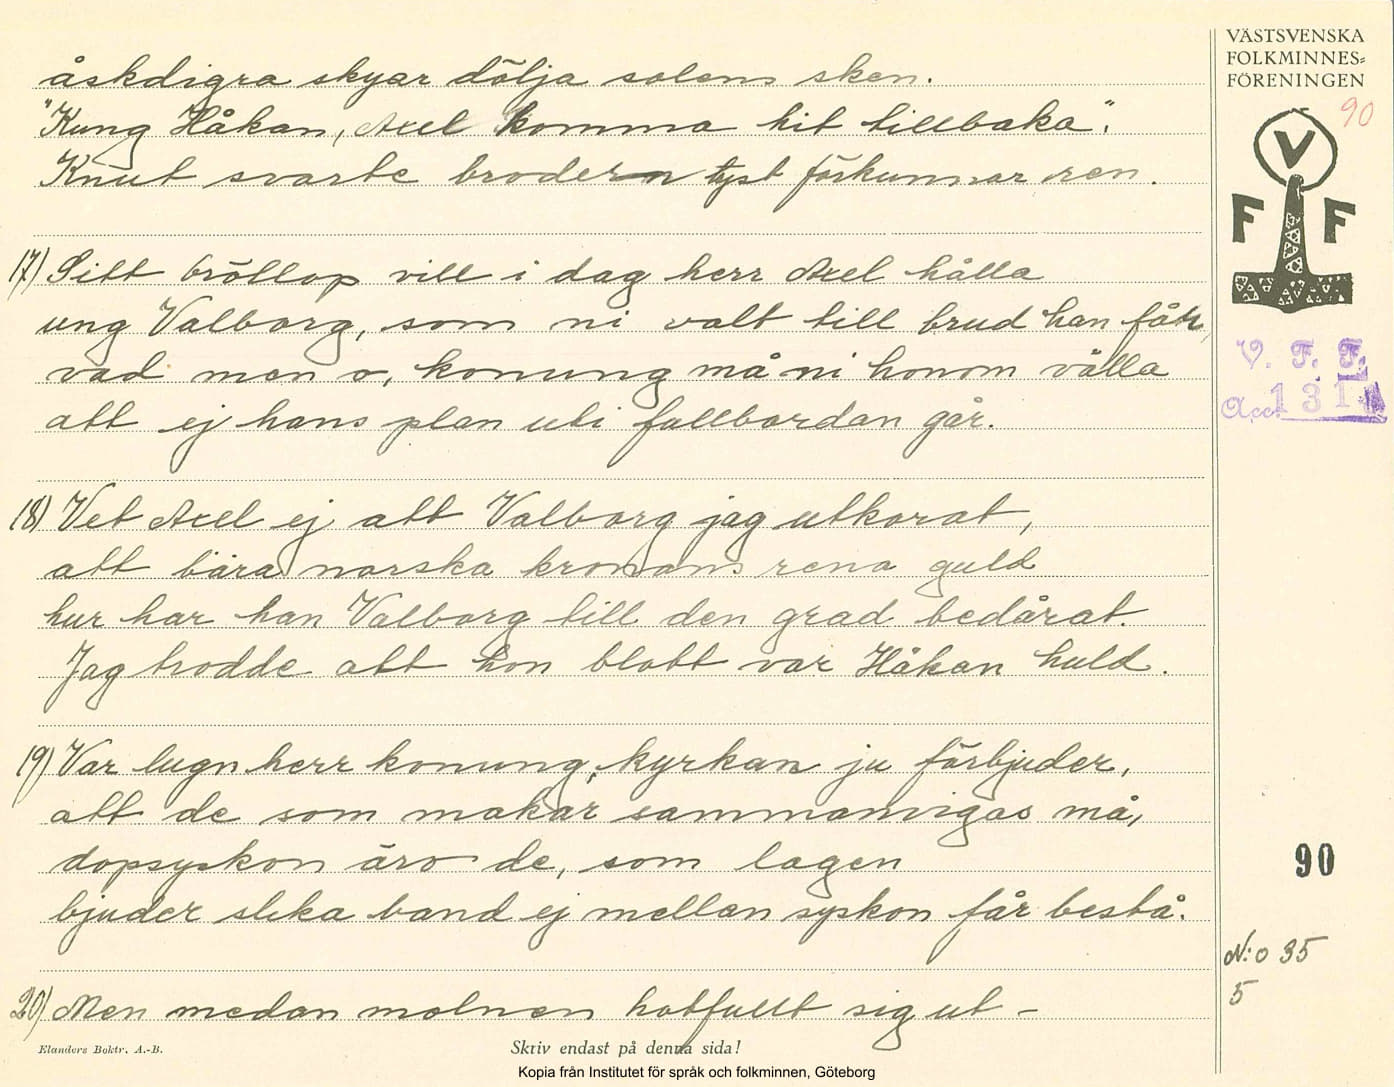 VÄSTSVENSKA
FOLKMINNES-
FÖRENINGEN
90
V
F F
V. F. F.
Acc. 131
åskdigra skyar dölja solens sken.
"Kung Håkan, Axel komma hit tillbaka".
Knut svarte brodern tyst förkunnar ren.
17) Sitt bröllop vill i dag herr Axel hålla
ung Valborg, som ni valt till brud han fått,
vad men o, konung må ni honom vålla
att ej hans plan uti fullbordan går.
18) Vet Axel ej att Valborg jag utkorat,
att bära norska kronans rena guld
hur har han Valborg till den grad bedårat.
Jag trodde att hon blott var Håkan huld.
19) Var lugn herr konung, kyrkan ju förbjuder,
att de som makar sammanvigas må,
dopsyskon äro de, som lagen
bjuder slika band ej mellan syskon får bestå.
20) Men medan molnen hotfullt sig ut -
90
N:o 35
5
Elanders Boktr. A.-B.
Skriv endast på denna sida!
Kopia från Institutet för språk och folkminnen, Göteborg